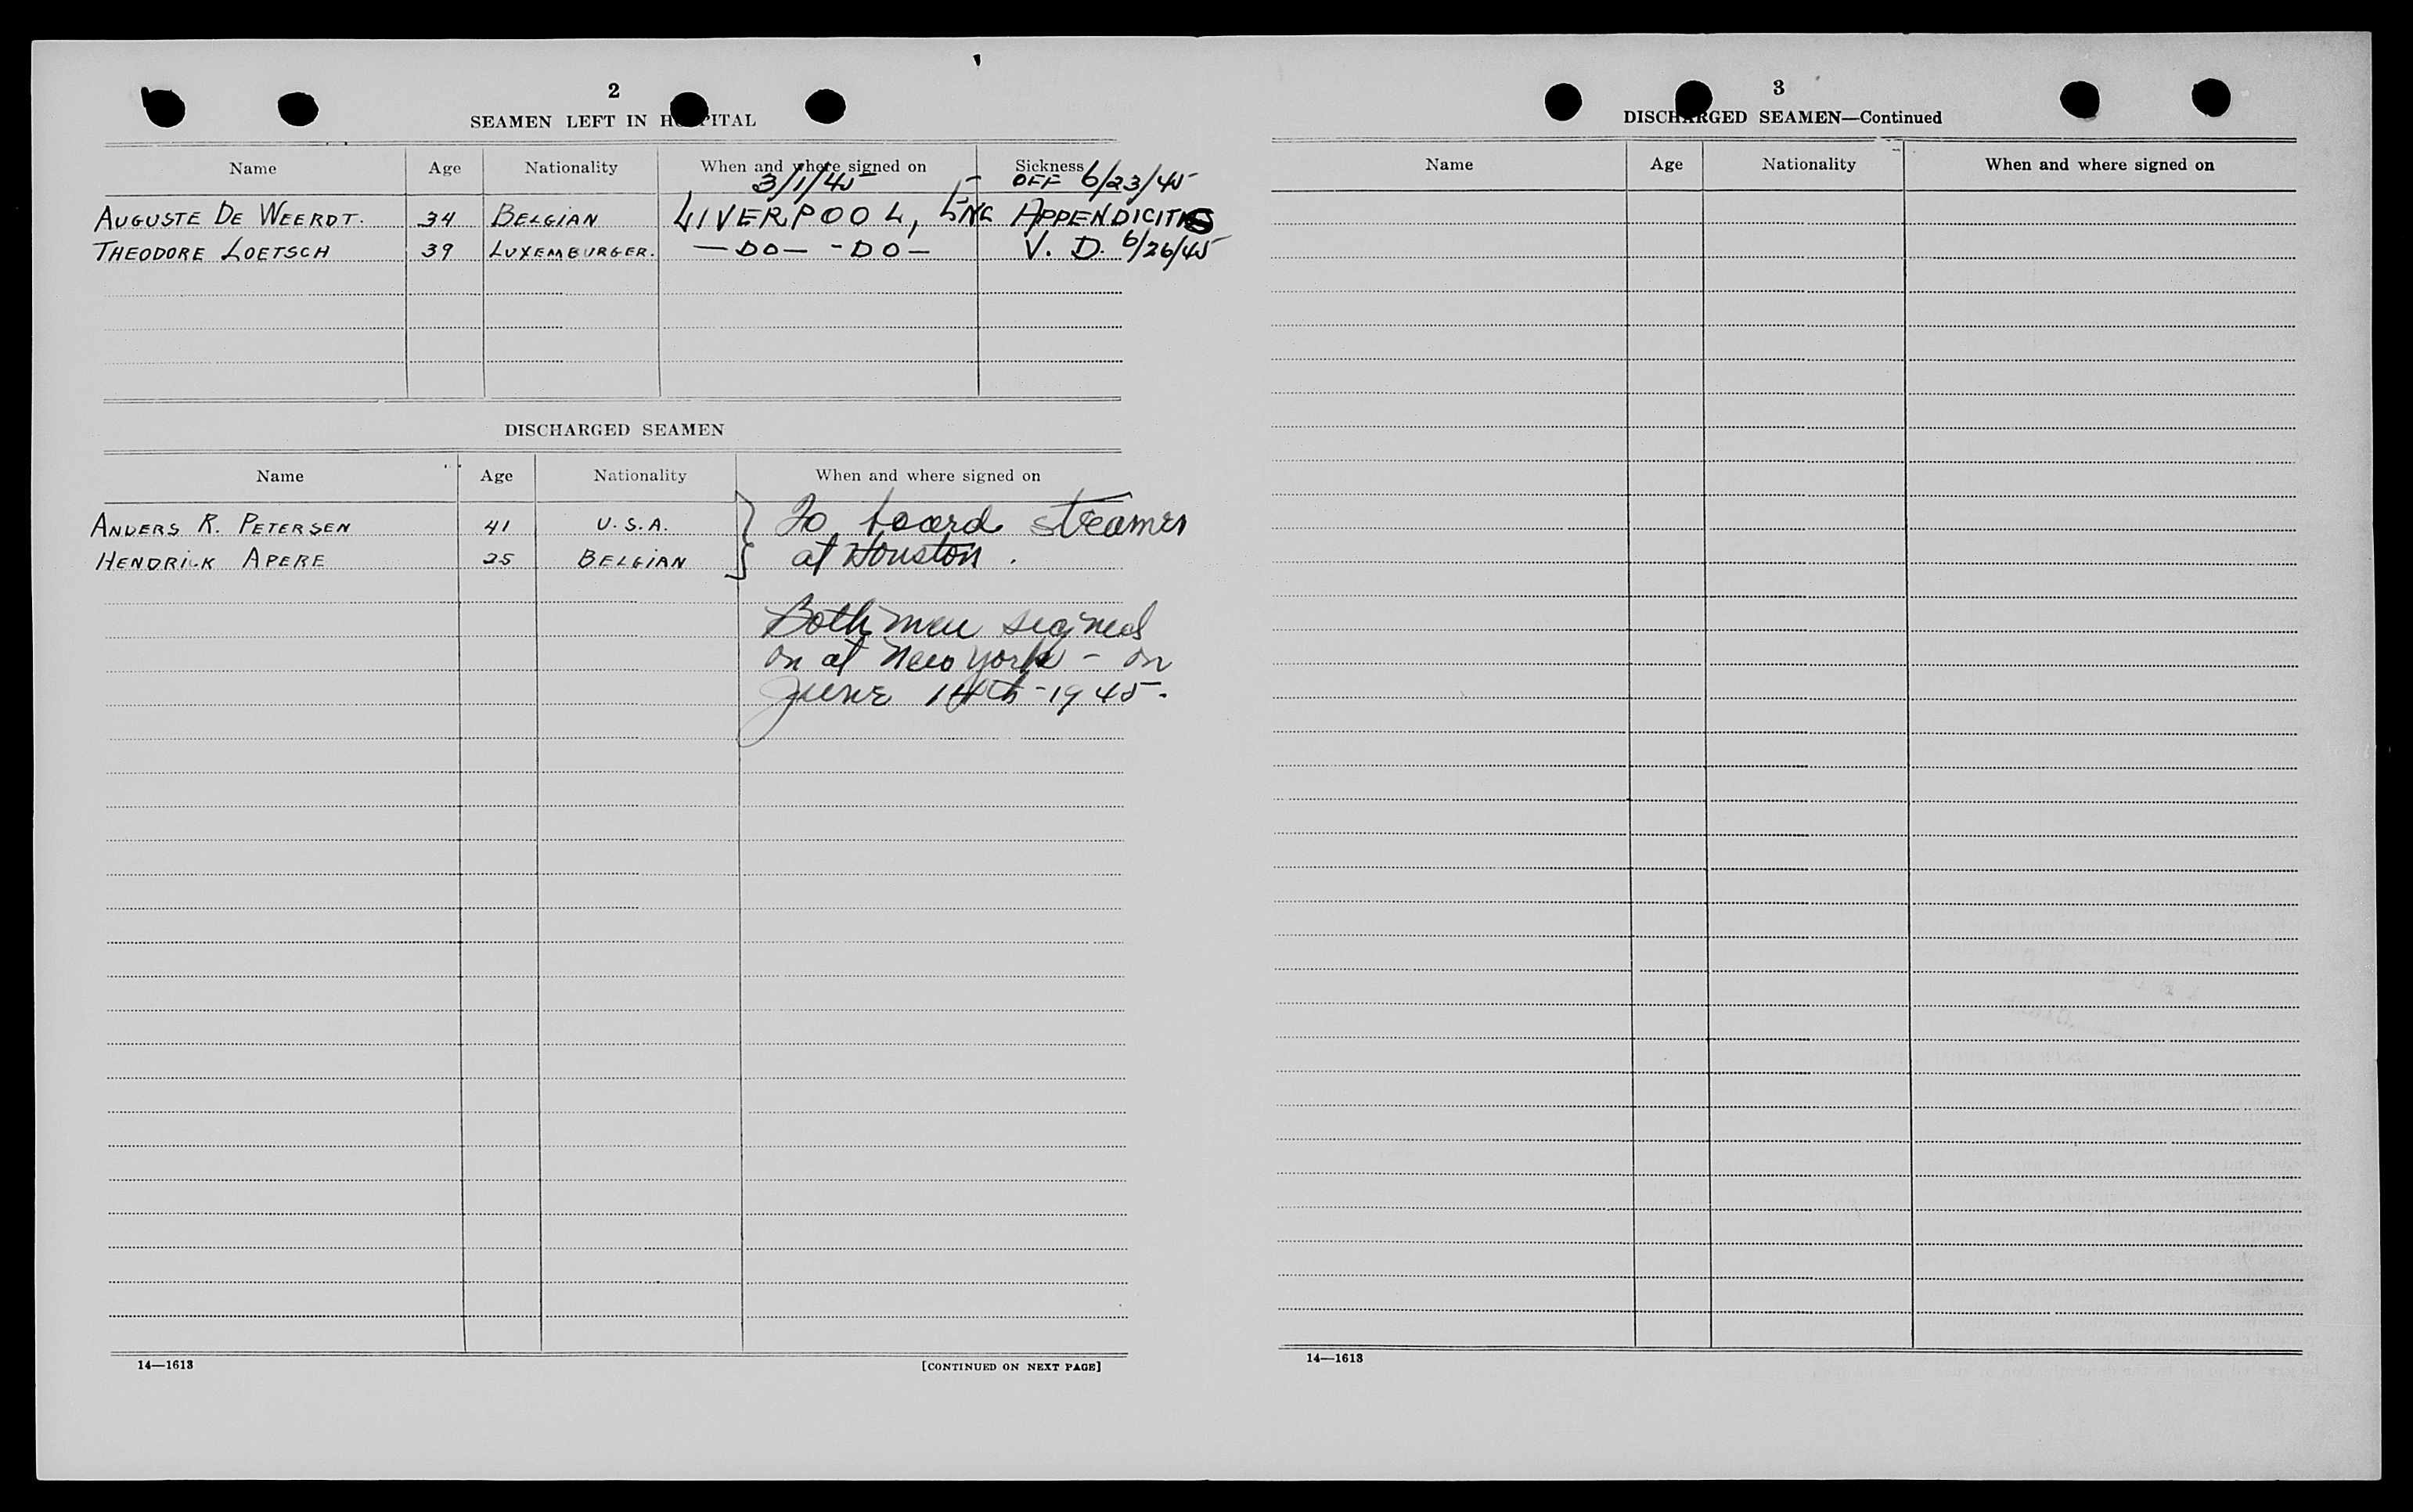 2
SEAMEN LEFT IN HOSPITAL
Name Age Nationality When and where signed on Sickness
3/1/45 OFF 6/23/45
AUGUSTE DE WEERDT. 34 BELGIAN LIVERPOOL, ENG APPENDICITIS
THEODORE LOETSCH 39 LUXEMBURGER. —DO— -DO— V. D. 6/26/45
DISCHARGED SEAMEN
Name Age Nationality When and where signed on
ANDERS R. PETERSEN 41 U.S.A. To board steamer
HENDRICK APERE 25 BELGIAN at Houston.
Both men signed
on at New York - on
June 14th - 1945.
14—1613 [CONTINUED ON NEXT PAGE]
3
DISCHARGED SEAMEN—Continued
Name Age Nationality When and where signed on
14—1613